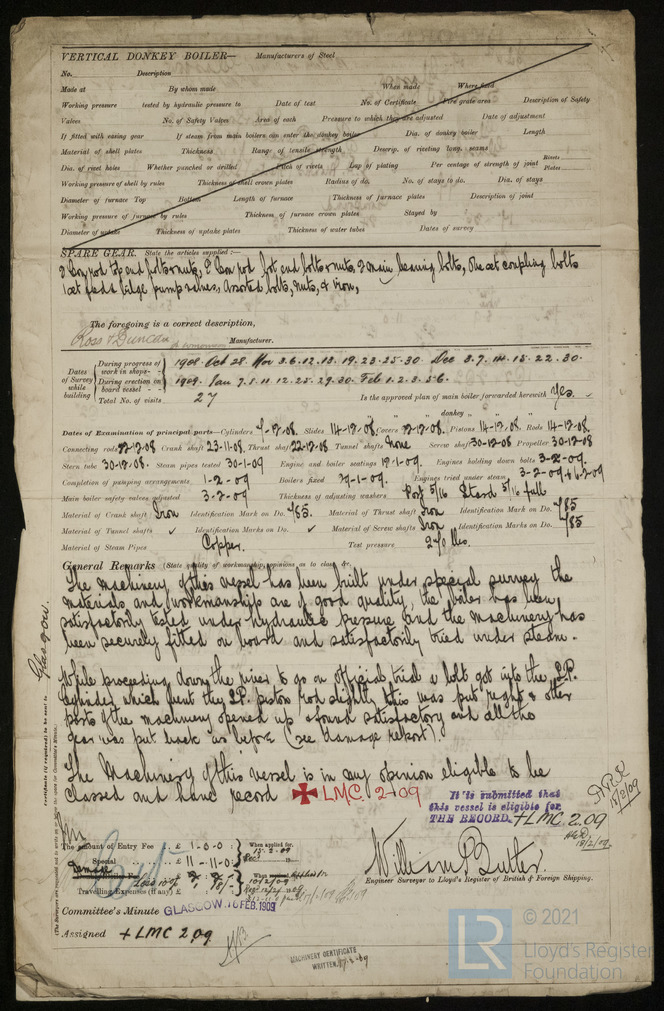 VERTICAL DONKEY BOILER— Manufacturers of Steel
No. Description
Made at By whom made When made Where fixed
Working pressure tested by hydraulic pressure to Date of test No. of Certificate Fire grate area Description of Safety
Valves No. of Safety Valves Area of each Pressure to which they are adjusted Date of adjustment
If fitted with easing gear If steam from main boilers can enter the donkey boiler Dia. of donkey boiler Length
Material of shell plates Thickness Range of tensile strength Descrip. of riveting long. seams
Dia. of rivet holes Whether punched or drilled Pitch of rivets Lap of plating Per centage of strength of joint Rivets Plates
Working pressure of shell by rules Thickness of shell crown plates Radius of do. No. of stays to do. Dia. of stays
Diameter of furnace Top Bottom Length of furnace Thickness of furnace plates Description of joint
Working pressure of furnace by rules Thickness of furnace crown plates Stayed by
Diameter of uptake Thickness of uptake plates Thickness of water tubes Dates of survey
SPARE GEAR. State the articles supplied:—
2 Con rod top end bolts & nuts, 2 Con rod bot end bolts & nuts, 2 main bearing bolts, One set coupling bolts
1 set feed & bilge pump valves, Assorted bolts, nuts, & iron,
The foregoing is a correct description,
Ross & Duncan Manufacturer.
Dates of Survey while building
During progress of work in shops-- 1908. Oct 28. Nov 3.6.12.13.19.23.25.30. Dec 3.7.14.15.22.30.
During erection on board vessel--- 1909. Jan 7.11.12.25.29.30. Feb 1.2.3.5.6.
Total No. of visits 27 In the approved plan of main boiler forwarded herewith Yes.
" " donkey " "
Dates of Examination of principal parts—Cylinders 7-12-08. Slides 14-12-08. Covers 22-12-08. Pistons 14-12-08. Rods 14-12-08.
Connecting rods 22-12-08 Crank shaft 23-11-08. Thrust shaft 22-12-08 Tunnel shafts None Screw shaft 30-12-08 Propeller 30-12-08
Stern tube 30-12-08. Steam pipes tested 30-1-09 Engine and boiler seatings 12-1-09. Engines holding down bolts 3-2-09.
Completion of pumping arrangements 1-2-09 Boilers fixed 29-1-09. Engines tried under steam 3-2-09 & 6-2-09
Main boiler safety valves adjusted 3-2-09 Thickness of adjusting washers Port 5/16 Starbd 5/16 full
Material of Crank shaft Iron Identification Mark on Do. 785. Material of Thrust shaft Iron Identification Mark on Do. 785
Material of Tunnel shafts ✓ Identification Marks on Do. ✓ Material of Screw shafts Iron Identification Marks on Do. 785
Material of Steam Pipes Copper. Test pressure 270 lbs.
General Remarks (State quality of workmanship, opinions as to class, &c.
The machinery of this vessel has been built under special survey the
materials and workmanship are of good quality, the boiler has been
satisfactorily tested under hydraulic pressure and the machinery has
been securely fitted on board and satisfactorily tried under steam.
While proceeding down the river to go on official trial a bolt got into the I.P.
Cylinder which bent the I.P. piston rod slightly this was put right & other
parts of the machinery opened up & found satisfactory and all the
gear was put back as before (see damage report).
The Machinery of this vessel is in my opinion eligible to be
classed and have record ✠ LMC. 2-09
It is submitted that
this vessel is eligible for
THE RECORD. + LMC 2.09
18/2/09
18/2/09
Glasgow.
certificate (if required) to be sent to
The amount of Entry Fee . . £ 1-0-0 When applied for.
Special . . . . £ 11-11-0 15.2.09
Travelling Expenses (if any) £
William Butler.
Engineer Surveyor to Lloyd's Register of British & Foreign Shipping.
Committee's Minute GLASGOW 16 FEB. 1909
Assigned + LMC 2.09
MACHINERY CERTIFICATE
WRITTEN.
LR
© 2021
Lloyd's Register
Foundation